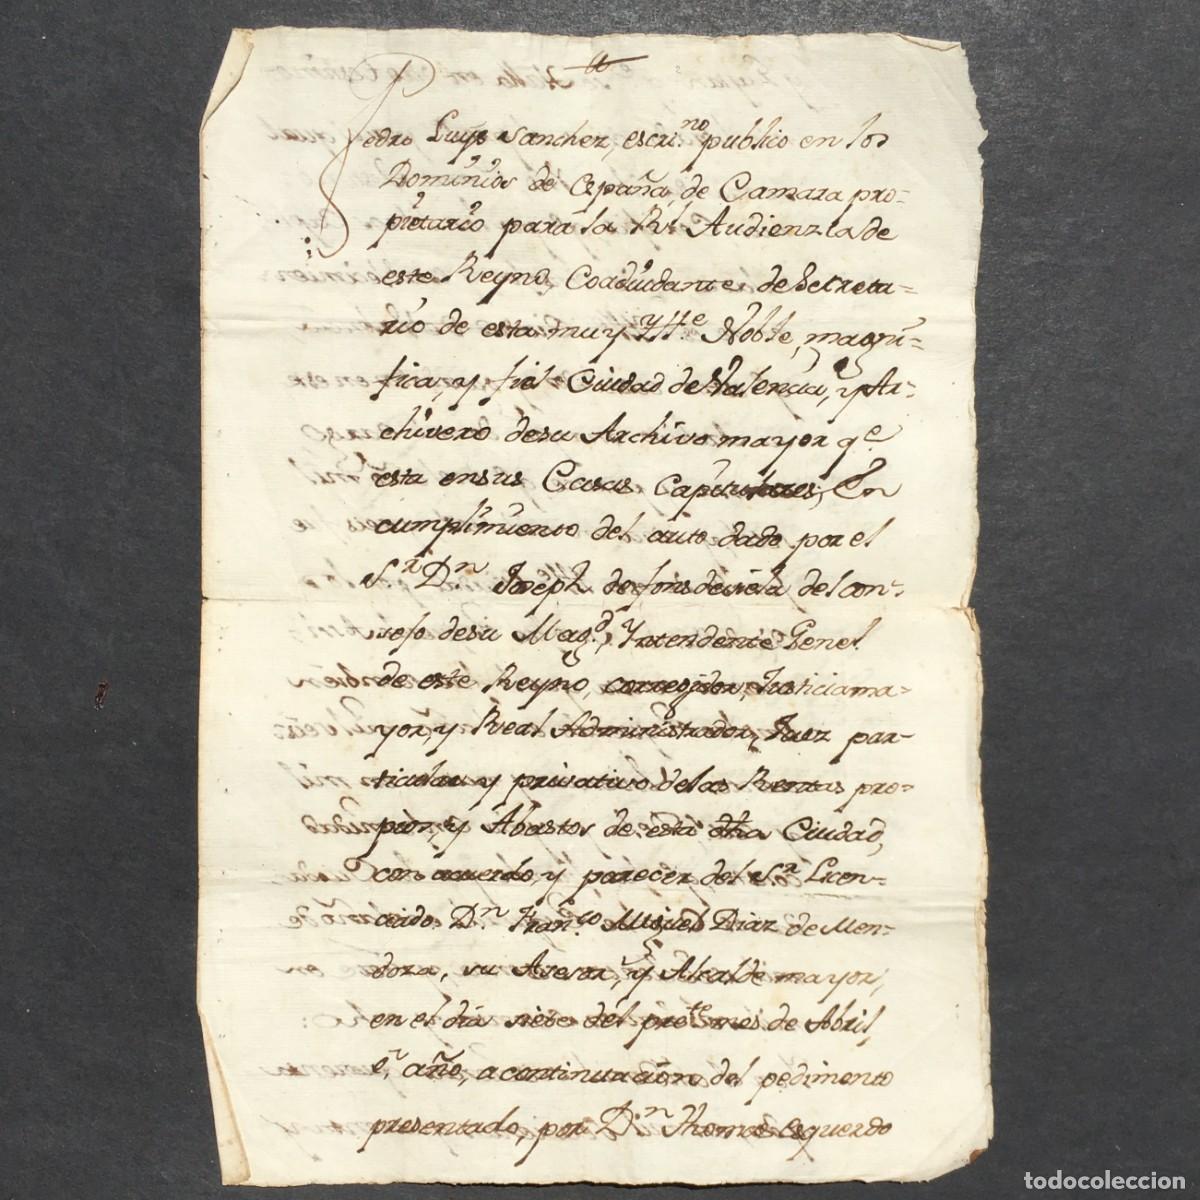 Pedro Luys Sanchez, escri.no publico en los
Dominios de España, de Camara pro-
pietario para la Rl. Audienzia de
este Reyno, Coadiudante de Secreta-
rio de esta muy Ytt.e Noble, magni-
fica, y fiel Ciudad de Valencia, y Ar-
chivero de su Archivo mayor q.e
esta en sus Casas Capitulares; En
cumplimiento del auto dado por el
S.r D.n Joseph de fonsdeviela del con-
sejo de su Mag.d, Yntendente Genel.
de este Reyno, corregidor, Justicia ma-
yor, y Real Administrador, Juez par-
ticular y privativo de las Rentas pro-
pios, y Abastos de esta dha Ciudad,
con acuerdo, y parecer del S.r Licen-
ciado D.n Fran.co Miguel Diaz de Men-
doza, su Asesor, y Alcalde mayor,
en el dia siete del pres.te mes de Abril,
e año, a continuacion del pedimento
presentado, por D.n Thomas esquerdo
todocoleccion